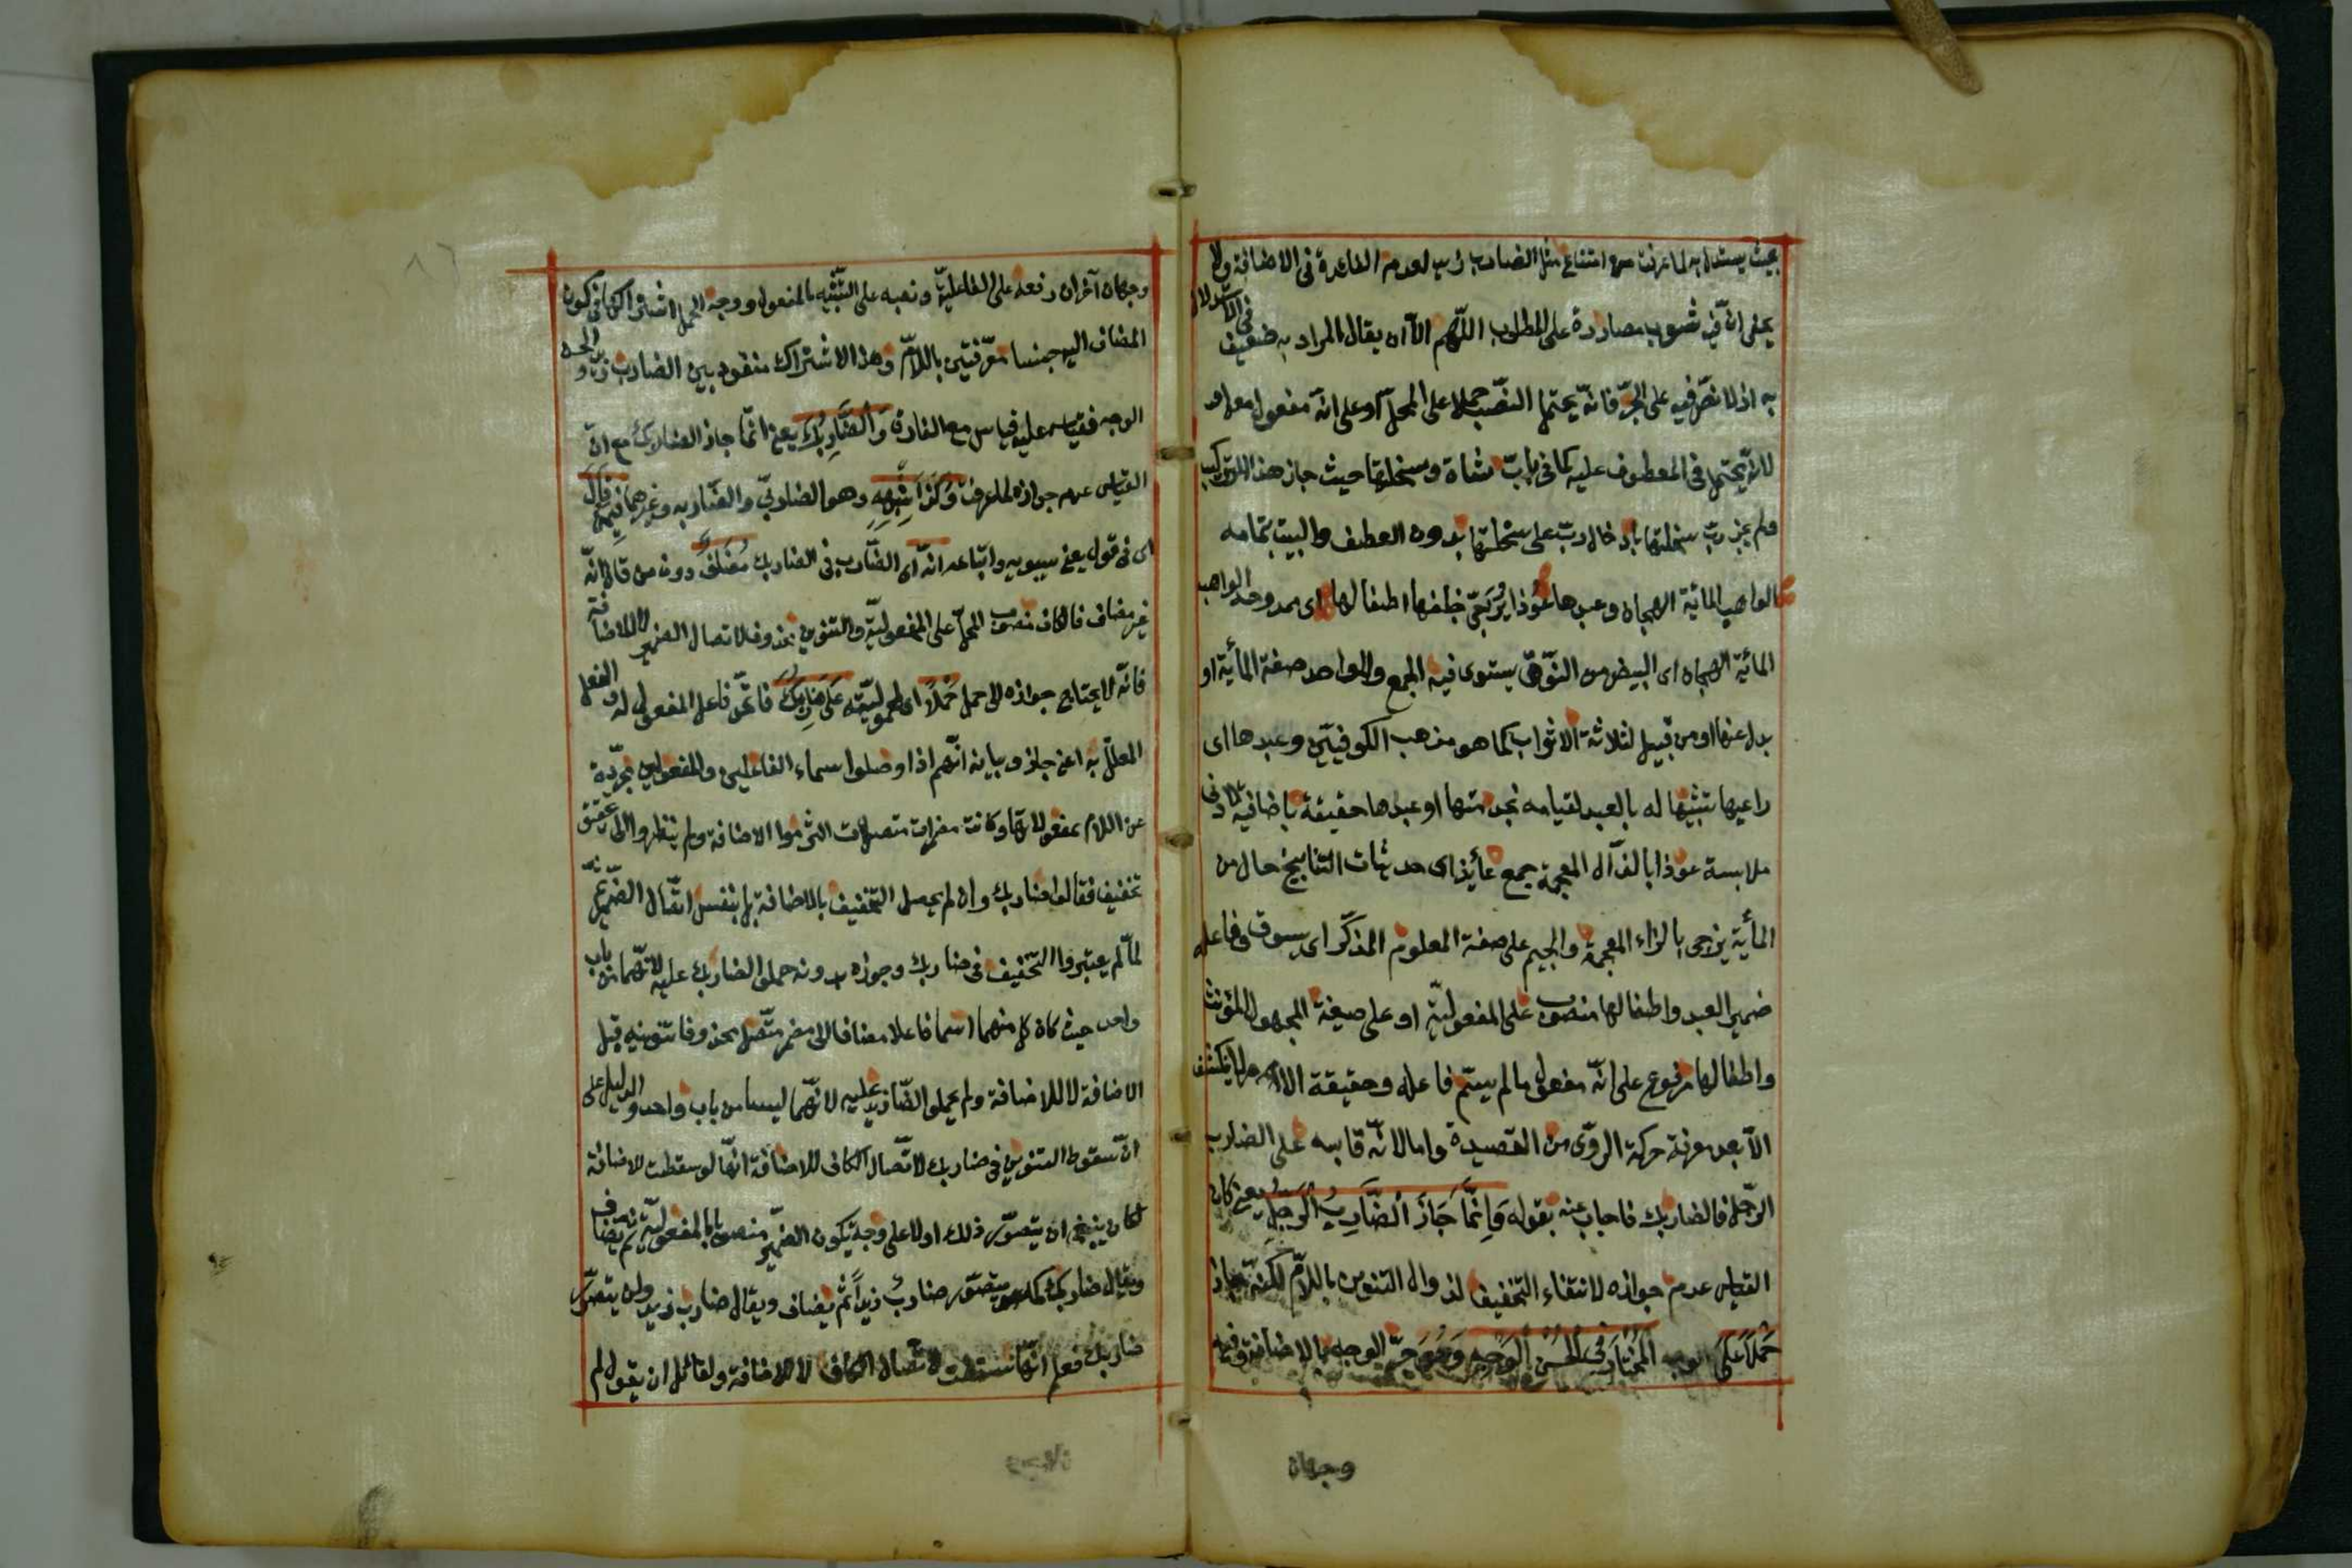 بحيث يستدل به لما عرفت من امتناع مثل الضارب زيد لعدم الفائدة فى الاضافة ولا
يخفى ان فيه شوب مصادرة على المطلوب اللّهم الّا ان يقال المراد به ضعيف فى الاستدلال
به اذ لا نصّ فيه على الجرّ فانّه يحتمل النّصب حملا على المحلّ او على انّه مفعول معه او
لانّه يحتمل فى المعطوف عليه كما فى ربّ شاة وسخلتها حيث جاز هذا التركيب
ولم يجز ربّ سخلتها بادخال ربّ على سخلتها بدون العطف والبيت بتمامه
الواهب المائة الهجان وعبدها عوذا يزجّى خلفها اطفالها اى ممدوحه الواهب
المائة الهجان اى البيض من النّوق يستوى فيه الجمع والواحد صفة المأية او
بدل عنها او من قبيل لثلاثة الاثواب كما هو مذهب الكوفيّين وعبدها اى
راعيها تشبيها له بالعبد لقيامه بخدمتها او عبدها حقيقة باضافته لادنى
ملابسة عوذا بالذّال المعجمة جمع عائذ اى حديثات النتايج حال من
المأية يزجى بالزاء المعجمة والجيم على صفة المعلوم المذكّر اى يسوق وفاعله
ضمير العبد واطفالها منصوب على المفعوليّة او على صيغة المجهول المؤنث
واطفالها مرفوع على انّه مفعول ما لم يسمّ فاعله وحقيقة الامر لا ينكشف
الّا بعد معرفة حركة الروّى من القصيدة وامّا لانّه قاسه على الضارب
الرّجل فالضاربك فاجاب عنه بقوله وَاِنَّمَا جَازَ الضَّارِبُ الرَّجُلِ يعنى كان
القياس عدم جوازه لانتفاء التخفيف لزوال التنوين باللّام لكنّه جاز
حَمْلاً عَلَى الوجه المُخْتَارِ فى الحَسَنِ الوَجْهِ وَهُوَ جرّ الوجه بالاضافة وفيه
وجهان
وجهان آخران رفعه على الفاعليّة ونصبه على التشبّيه بالمفعول ووجه الحمل اشتراكهما فى كون
المضاف اليه جنسا معرّفتين باللّام وهذا الاشتراك مفقود بين الضارب زيد والحسن
الوجه فقياسه عليه قياس مع الفارق وَالضَّارِبُكَ يعنى انّما جاز الضاربك مع انّ
القياس عدم جوازه لما عرفت وَكَذَا شِبْهُهِ وهو الضاربى والضّاربه وغيرهما فِيمَنْ قَالَ
اى فى قول يعنى سيبويه واتباعه انّه اى الضّارب فى الضاربك مُضَافٌ دون من قال انّه
غير مضاف فالكاف منصوب المحلّ على المفعوليّة والتنوين محذوف لاتصال الضمير لا للاضافة
فانّه لا يحتاج جوازه الى حمل حَمْلاً اى لمحموليّته عَلَى ضَارِبِكَ فاتّحد فاعل المفعول له والفعل
المعلّل به اعنى جاز وبيانه انّهم اذا وصلوا اسماء الفاعلين والمفعولين مجرّدة
عن اللام بمفعولاتها وكانت مضمرات متصلات التزموا الاضافة ولم ينظروا الى تحقق
تخفيف فقالوا ضاربك وان لم يحصل التخفيف بالاضافة بل بنفس اتّصال الضّمير ثمّ
لمّا لم يعتبروا التّخفيف فى ضاربك وجوازه بدونه حملوا الضاربك عليه لانّهما من باب
واحد حيث كان كل منهما اسما فاعلا مضافا الى مضمر متّصل محذوفا تنوينه قبل
الاضافة لا للاضافة ولم يحملوا الضّارب زيد عليه لانّهما ليسا من باب واحد والدليل على
انّ سقوط التنوين فى ضاربك لاتّصال الكاف لا للاضافة انّها لو سقطت للاضافة
لكان ينبغى ان يتصوّر ذلك اولا على وجه يكون الضمير منصوبا بالمفعوليّة ثمّ يضاف
ويقال ضاربك كما يتصوّر ضاربٌ زيداً ثمّ يضاف ويقال ضارب زيد ولن يتصوّر
ضاربك فعلم انّها سقطت لاتّصال الكاف لا للاضافة ولقائل ان يقول لم